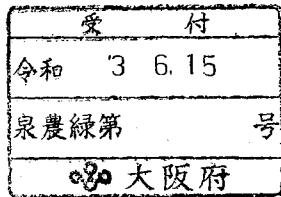 受 付
令和 '3 6.15
泉農緑第 号
大阪府